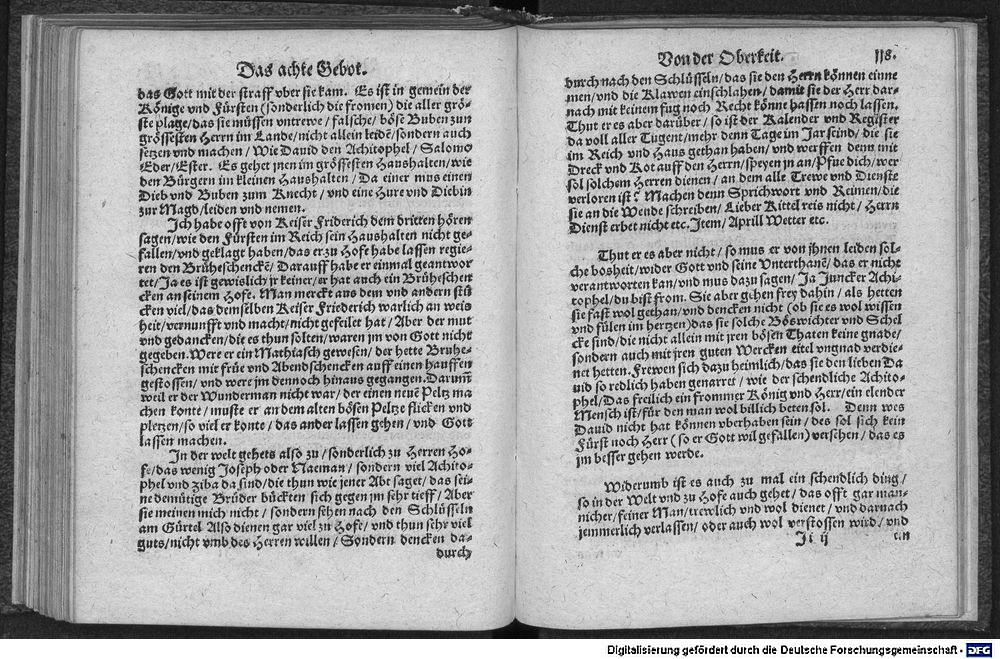 Das achte Gebot.
das Gott mit der straff vber sie kam. Es ist in gemein der
Könige vnd Fürsten (sonderlich die fromen) die aller grö-
ste plage/das sie müssen vntrewe/falsche/böse Buben zun
grössesten Herrn im Lande/nicht allein leidē/sondern auch
setzen vnd machen/Wie Dauid den Achitophel/Salomo
Eder/Ester. Es gehet jnen im grössesten Haushalten/wie
den Bürgern im kleinen Haushalten/Da einer mus einen
Dieb vnd Buben zum Knecht/vnd eine Hure vnd Diebin
zur Magd/leiden vnd nemen.
Ich habe offt von Keiser Friderich dem dritten hören
sagen/wie den Fürsten im Reich sein Haushalten nicht ge-
fallen/vnd geklagt haben/das er zu Hofe habe lassen regie-
ren den Brüheschenckē/Darauff habe er einmal geantwor
tet/Ja es ist gewislich jr keiner/er hat auch ein Brüheschen
cken an seinem Hofe. Man merckt aus dem vnd andern stü
cken viel/das demselben Keiser Friederich warlich an weis
heit/vernunfft vnd macht/nicht gefeilet hat/Aber der mut
vnd gedancken/die es thun solten/waren jm von Gott nicht
gegeben. Were er ein Mathiasch gewesen/der hette Bruhe-
schencken mit früe vnd Abendschencken auff einen hauffen
gestossen/vnd were jm dennoch hinaus gegangen. Darum̄
weil er der Wunderman nicht war/der einen neuē Peltz ma
chen konte/muste er an dem alten bösen Peltze flicken vnd
pletzen/so viel er konte/das ander lassen gehen/vnd Gott
lassen machen.
In der welt gehets also zu/sonderlich zu Herren Ho-
fe/das wenig Joseph oder Naeman/sondern viel Achito-
phel vnd Ziba da sind/die thun wie jener Abt saget/das sei-
ne demütige Brüder bückten sich gegen jm sehr tieff/Aber
sie meinen mich nicht/sondern sehen nach den Schlüsseln
am Gürtel Also dienen gar viel zu Hofe/vnd thun sehr viel
guts/nicht vmb des Herren willen/Sondern dencken da-
durch
Von der Oberkeit. 118.
durch nach den Schlüsseln/das sie den Herrn können einne
men/vnd die Klawen einschlahen/damit sie der Herr dar-
nach mit keinem fug noch Recht könne hassen noch lassen.
Thut er es aber darüber/so ist der Kalender vnd Register
da voll aller Tugent/mehr denn Tage im Jar seind/die sie
im Reich vnd Haus gethan haben/vnd werffen denn mit
Dreck vnd Kot auff den Herrn/speyen jn an/Pfue dich/wer
sol solchem Herren dienen/an dem alle Trewe vnd Dienste
verloren ist? Machen denn Sprichwort vnd Reimen/die
sie an die Wende schreiben/Lieber Kittel reis nicht/Herrn
Dienst erbet nicht etc. Item/Aprill Wetter etc.
Thut er es aber nicht/so mus er von jhnen leiden sol-
che bosheit/wider Gott vnd seine Vnterthanē/das er nicht
verantworten kan/vnd mus dazu sagen/Ja Juncker Achi-
tophel/du bist from. Sie aber gehen frey dahin/als hetten
sie fast wol gethan/vnd dencken nicht (ob sie es wol wissen
vnd fülen im hertzen) das sie solche Böswichter vnd Schel
cke sind/die nicht allein mit jren bösen Thaten keine gnade/
sondern auch mit jren guten Wercken eitel vngnad verdie-
net hetten. Frewen sich dazu heimlich/das sie den lieben Da
uid so redlich haben genarret/wie der schendliche Achito-
phel/Das freilich ein frommer König vnd Herr/ein elender
Mensch ist/für den man wol billich beten sol. Denn wes
Dauid nicht hat können vberhaben sein/des sol sich kein
Fürst noch Herr (so er Gott wil gefallen) versehen/das es
jm besser gehen werde.
Widerumb ist es auch zu mal ein schendlich ding/
so in der Welt vnd zu Hofe auch gehet/das offt gar man-
nicher/feiner Man/trewlich vnd wol dienet/vnd darnach
jemmerlich verlassen/oder auch wol verstossen wird/vnd
Ji ij
Digitalisierung gefördert durch die Deutsche Forschungsgemeinschaft - DFG